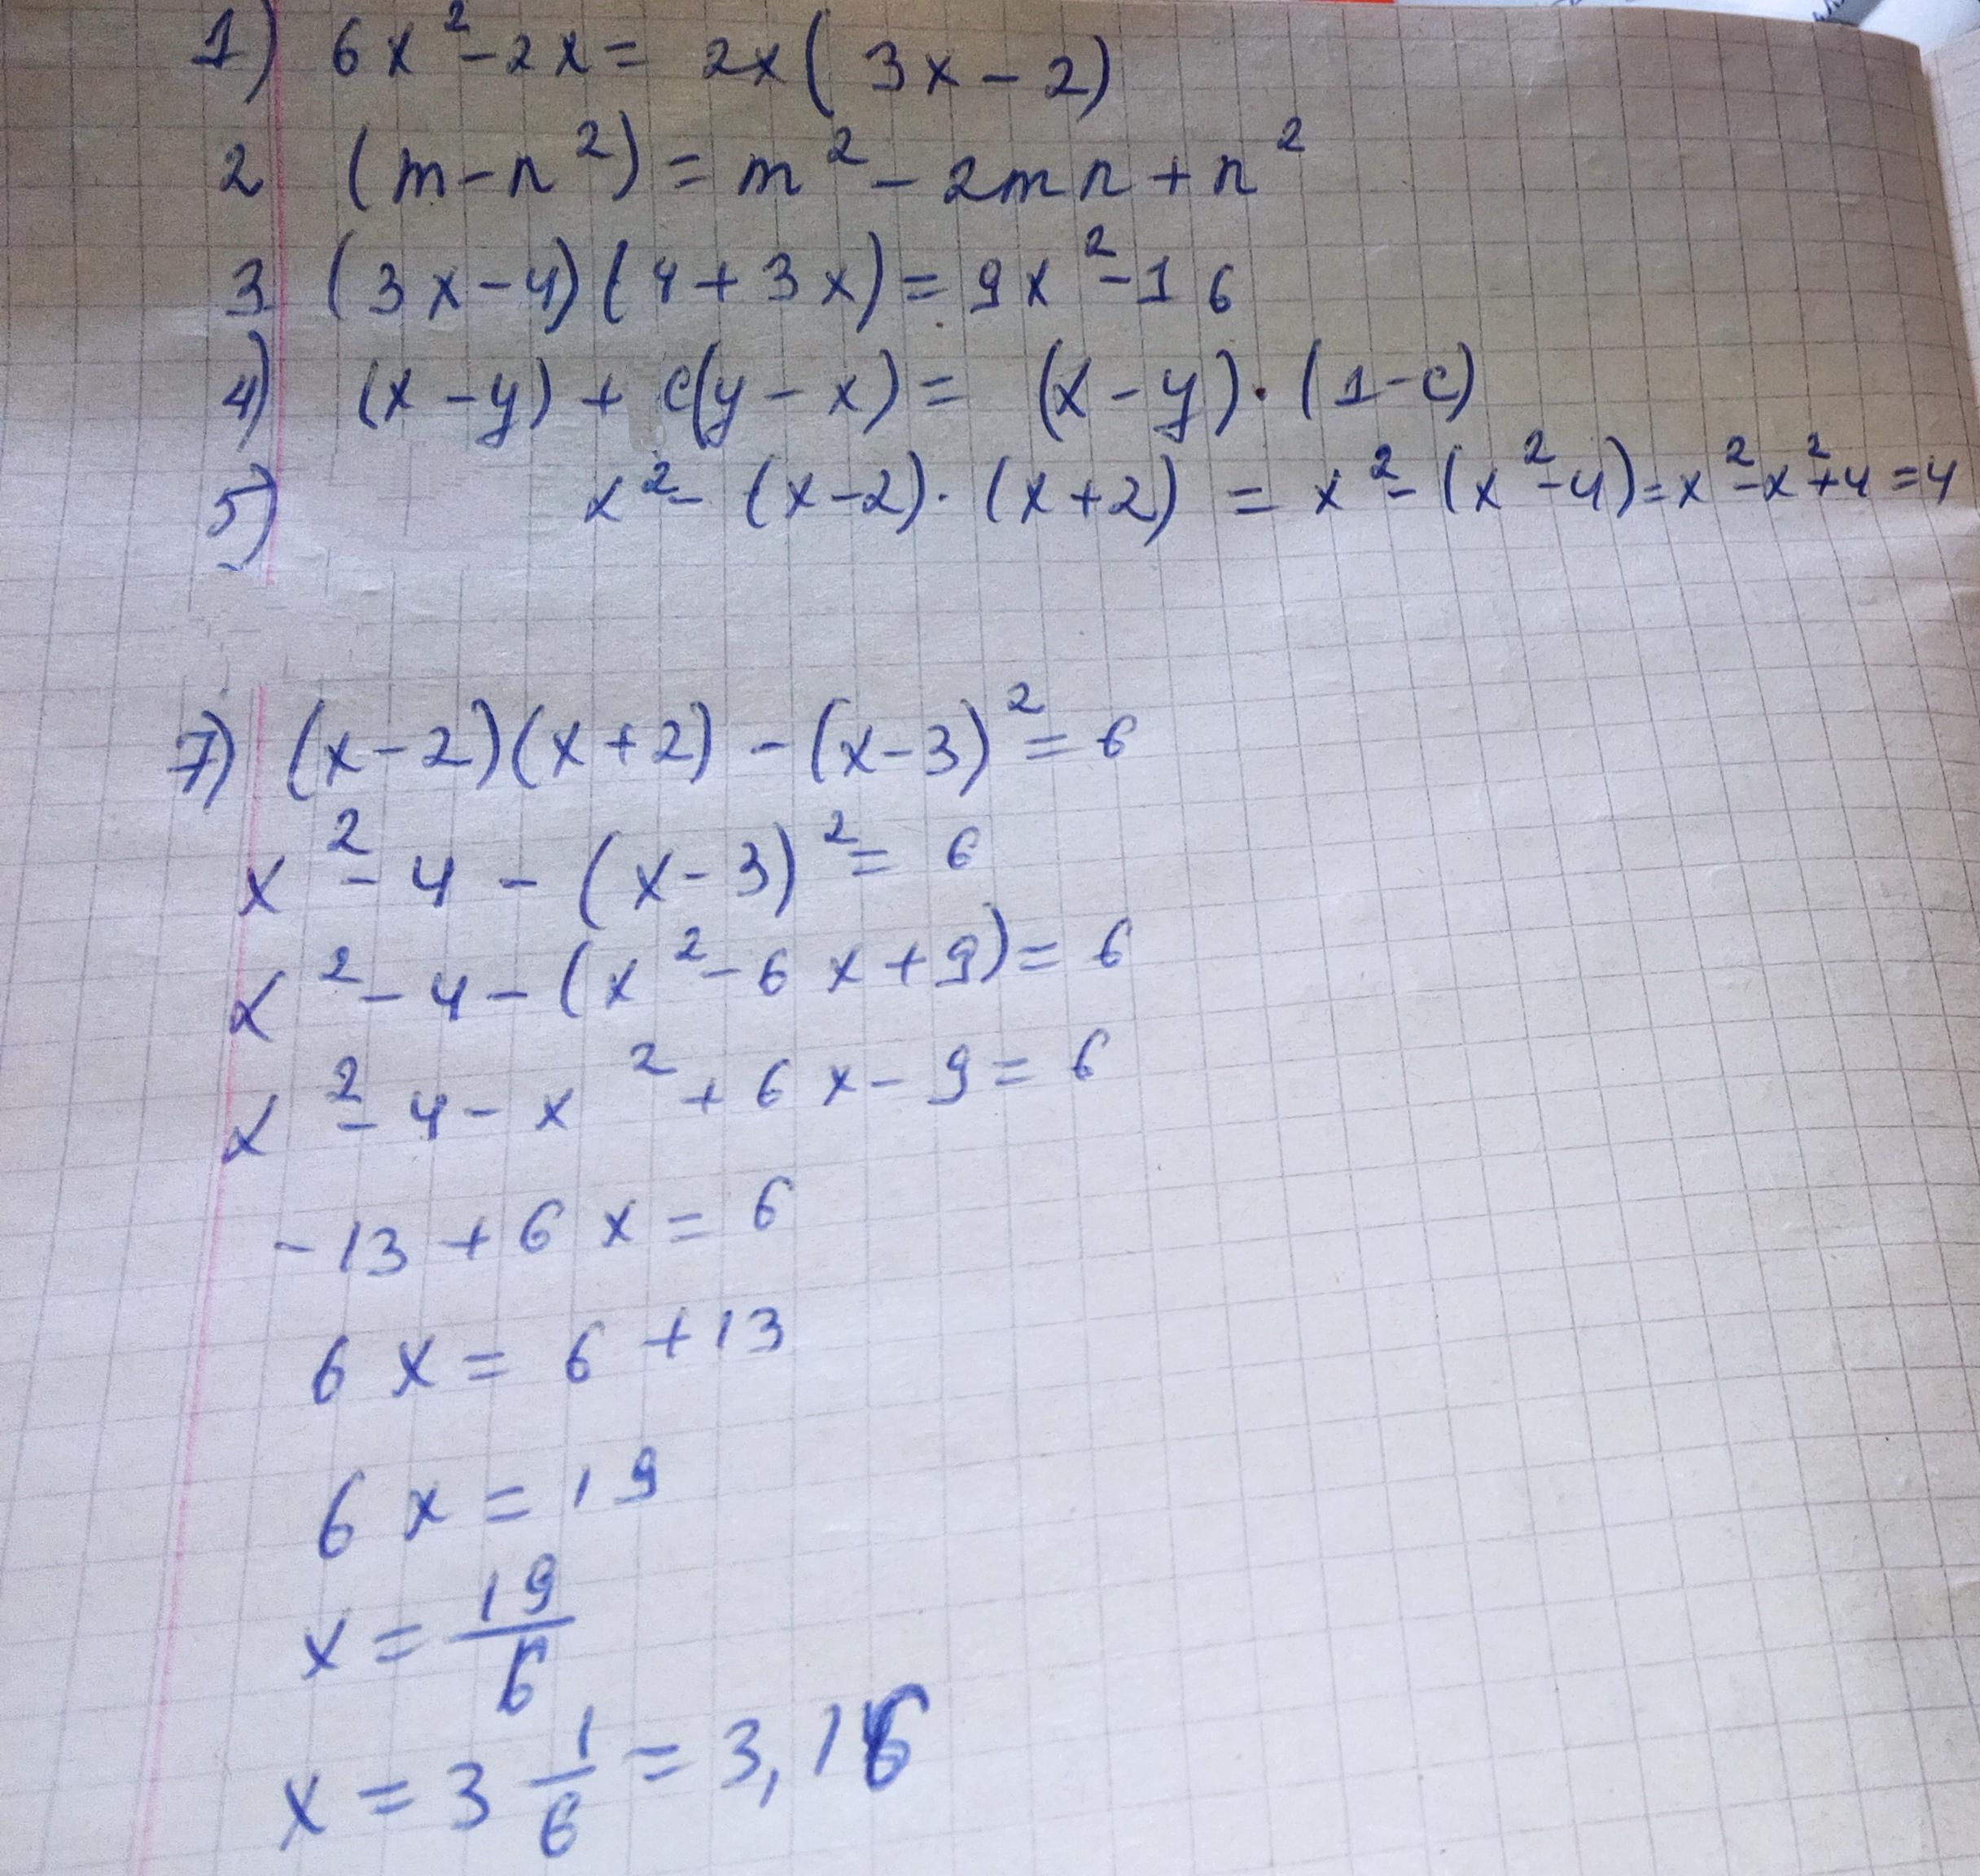 1) 6x² - 2x = 2x(3x - 2)
2 (m - n²) = m² - 2mn + n²
3 (3x - 4)(4 + 3x) = 9x² - 16
4) (x - y) + c(y - x) = (x - y) · (1 - c)
5) x² - (x - 2) · (x + 2) = x² - (x² - 4) = x² - x² + 4 = 4
7) (x - 2)(x + 2) - (x - 3)² = 6
x² - 4 - (x - 3)² = 6
x² - 4 - (x² - 6x + 9) = 6
x² - 4 - x² + 6x - 9 = 6
- 13 + 6x = 6
6x = 6 + 13
6x = 19
x = 19/6
x = 3 1/6 = 3,16